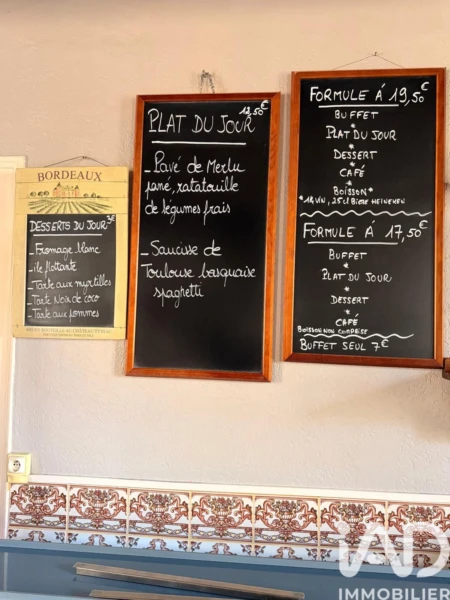 BORDEAUX
DESSERTS DU JOUR 3€
- Fromage blanc
île flottante
- Tarte aux myrtilles
- Tarte Noix de coco
- Tarte aux pommes
12,50€
PLAT DU JOUR
- Pavé de Merlu
pané, ratatouille
de légumes frais
- Saucisse de
Toulouse basquaise
spaghetti
FORMULE À 19,50€
BUFFET
*
PLAT DU JOUR
*
DESSERT
*
CAFÉ
*
BOISSON*
FORMULE À 17,50€
BUFFET
*
PLAT DU JOUR
*
DESSERT
*
CAFÉ
BOISSON NON COMPRISE
BUFFET SEUL 7€
iAD
IMMOBILIER